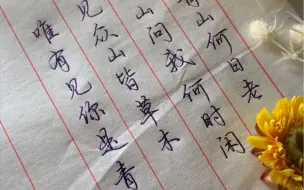 青山何日老
山问我何时闲
见众山皆草木
唯有见你是青